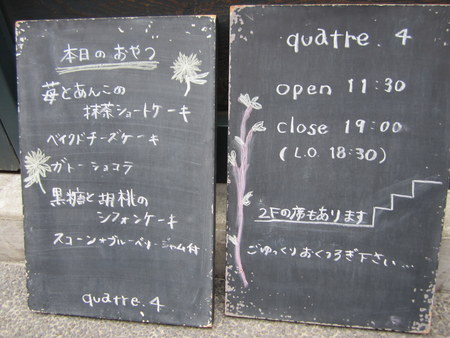 本日のおやつ
苺とあんこの
抹茶ショートケーキ
ベイクドチーズケーキ
ガトーショコラ
黒糖と胡桃の
シフォンケーキ
スコーン+ブルーベリージャム付
quatre.4
quatre.4
open 11:30
close 19:00
(L.O. 18:30)
2Fの席もあります
ごゆっくりおくつろぎ下さい...